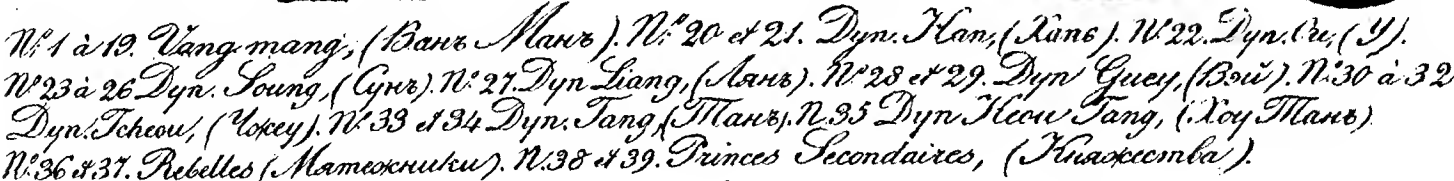 N.º 1 à 19. Vang mang, (Ванъ Манъ). N.º 20 et 21. Dyn. Han, (Хань). N.º 22. Dyn. Ou, (У).
N.º 23 à 26 Dyn. Soung, (Сунъ). N.º 27. Dyn Liang, (Лянъ). N.º 28 et 29. Dyn Guey, (Вэй). N.º 30 à 32
Dyn. Tcheou, (Чжеу). N.º 33 et 34 Dyn. Tang, (Танъ). N. 35 Dyn Heou Tang, (Хоу Танъ)
N.º 36 et 37. Rebelles (Мятежники). N. 38 et 39. Princes Secondaires, (Княжества).